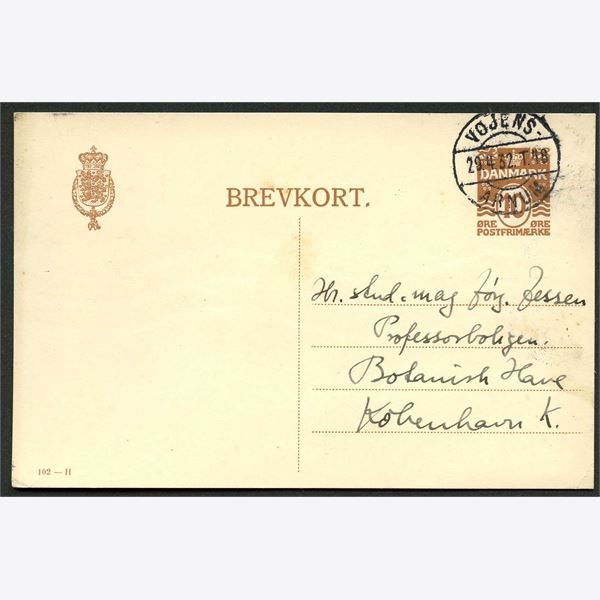 VOJENS-
29.4 32.T.
ARNUM
DANMARK
BREVKORT.
10
ØRE ØRE
POSTFRIMÆRKE
Hr. stud. mag Jörg. Jessen
Professorboligen.
Botanisk Have
København K.
102 — H